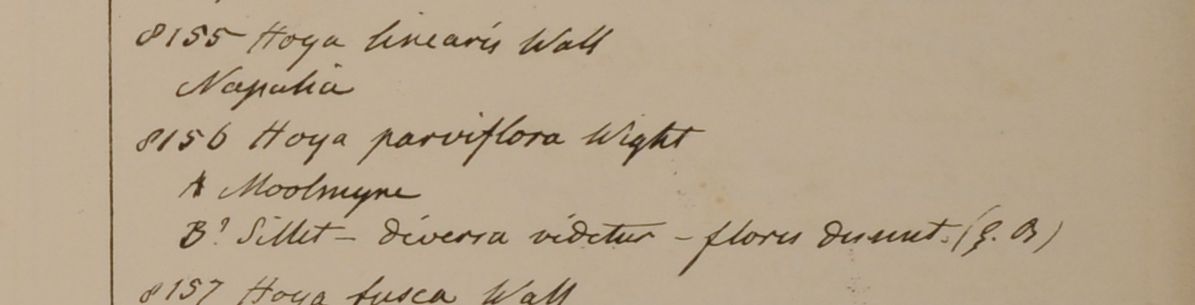 8155 Hoya linearis Wall
Napalia
8156 Hoya parviflora Wight
A Moolmyne
B? Sillet – diversa videtur – flores desunt. (G. B)
8157 Hoya fusca Wall